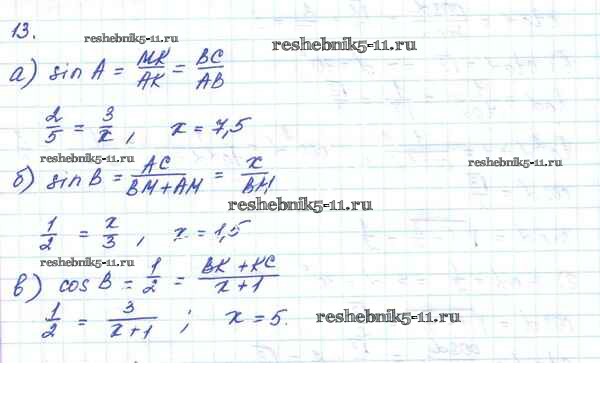 13.
reshebnik5-11.ru
reshebnik5-11.ru
а) sin A = MK/AK = BC/AB
2/5 = 3/x, x = 7,5
reshebnik5-11.ru
reshebnik5-11.ru
б) sin B = AC/BM+AM = x/BM
reshebnik5-11.ru
1/2 = x/3, x = 1,5
reshebnik5-11.ru
в) cos B = 1/2 = BK+KC/x+1
1/2 = 3/x+1; x = 5.
reshebnik5-11.ru